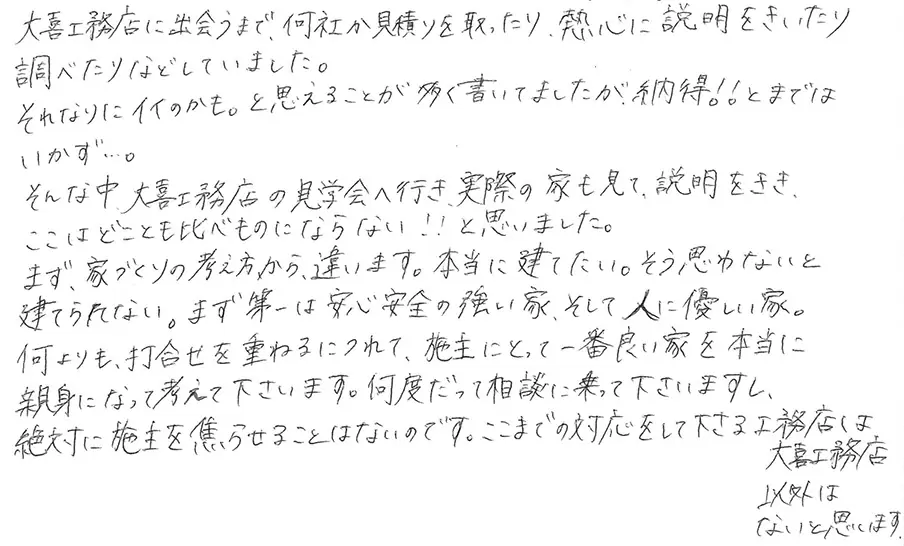 大喜工務店に出会うまで、何社か見積りを取ったり、熱心に説明をきいたり
調べたりなどしていました。
それなりにイイのかも。と思えることが多く書いてましたが、納得!!とまでは
いかず…。
そんな中、大喜工務店の見学会へ行き、実際の家も見て、説明をきき、
ここはどことも比べものにならない!!と思いました。
まず、家づくりの考え方から、違います。本当に建てたい。そう思わないと
建てられない。まず第一は安心安全の強い家、そして人に優しい家。
何よりも、打合せを重ねるにつれて、施主にとって一番良い家を本当に
親身になって考えて下さいます。何度だって相談に乗って下さいますし、
絶対に施主を焦らせることはないのです。ここまでの対応をして下さる工務店は
大喜工務店
以外は
ないと思います。